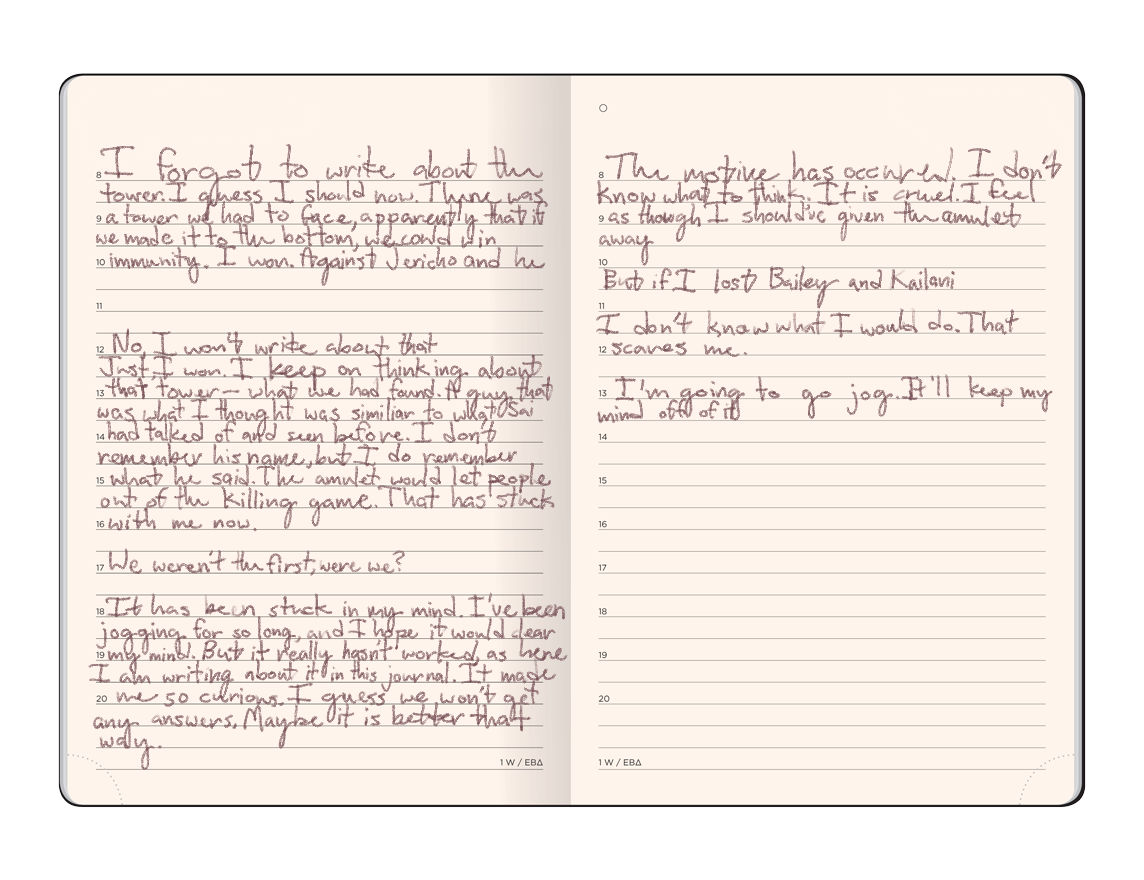 8 I forgot to write about the
tower. I guess I should now. There was
9 a tower we had to face, apparently that if
we made it to the bottom, we could win
10 immunity. I won. Against Jericho and he
11
12 No, I won't write about that
Just, I won. I keep on thinking about
13 that tower— what we had found. A guy that
was what I thought was similiar to what Sai
14 had talked of and seen before. I don't
remember his name, but I do remember
15 what he said. The amulet would let people
out of the killing game. That has stuck
16 with me now.
17 We weren't the first, were we?
18 It has been stuck in my mind. I've been
jogging for so long, and I hope it would clear
19 my mind. But it really hasn't worked, as here
I am writing about it in this journal. It made
20 me so curious. I guess we won't get
any answers. Maybe it is better that
way.
1 W / EBΔ
8 The motive has occured. I don't
know what to think. It is cruel. I feel
9 as though I should've given the amulet
away
10
But if I lost Bailey and Kailani
11
I don't know what I would do. That
12 scares me.
13 I'm going to go jog. It'll keep my
mind off of it
14
15
16
17
18
19
20
1 W / EBΔ